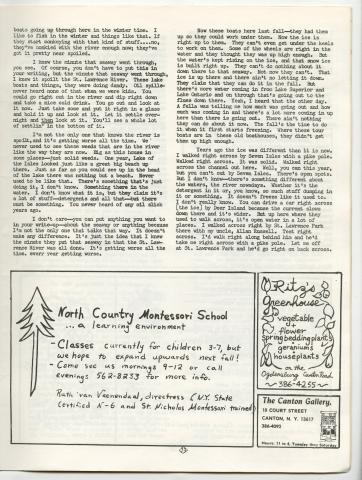 boats going up through here in the winter time. I
like to fish in the winter and things like that. If
they start monkeying with that kind of stuff....no,
they've monkied with the river enough now; they've
got it pretty near spoiled.
I know the minute that seaway went through,
you see. Of course, you don't have to put this in
your writing, but the minute that seaway went through,
I knew it spoilt the St. Lawrence River. These lake
boats and things, they were doing dandy. Oil spills—
never heard none of that when we were kids. You
could go right out in the river and dip a glass down
and take a nice cold drink. You go out and look at
it now. Just take some and put it right in a glass
and hold it up and look at it. Let it settle over-
night and then look at it. You'll see a whole lot
of settlin' in the bottom of it.
I'm not the only one that knows the river it
spoils, and it's getting worse all the time. We
never used to see these weeds that are in the river
like the way they are now. Big as this room in
some places—just solid weeds. One year, Lake of
the Isles looked just like a great big beach up
there. Just as far as you could see up in the head
of the lake there was nothing but a beach. Never
used to be like that. There's something that's just
doing it, I don't know. Something there in the
water. I don't know what it is, but they claim it's
a lot of stuff—detergents and all that—but there
must be something. You never heard of any all since
years ago.
I don't care—you can put anything you want to
in your write-up—about the seaway or anything because
I'm not the only one that talks that way. It doesn't
make any difference. It's just the idea that I knew
the minute they put that seaway in that the St. Law-
rence River was all done. It's getting worse all the
time, every year getting worse.
Now these boats here last fall—they had them
up so they could work under them. Now the ice is
right up to them. They can't even get under the keels
to work on them. Some of the wheels are right in the
water and they thought they was up high enough. But
the water's kept rising on the ice, and that snow ice
is built right up. They can't do nothing about it
down there to that seaway. But now they can't. That
ice is up there and there ain't no letting it down.
They claim that they can do it in the fall. But
there's more water coming in from Lake Superior and
Lake Ontario and on through that's going out to the
flume down there. Yeah, I heard that the other day.
A fella was telling me how much was going out and how
much was coming in and there's a lot more coming in up
here than there is going out. There ain't nothing
they can do about it now. The fall's the time to do
it when it first starts freezing. Where these tour
boats are in these old boathouses, they didn't get
them up high enough.
Years ago the ice was different than it is now.
I walked right across by Seven Isles with a pike pole.
Walked right across. It was solid. Walked right
across the channel out here. Well, you can this year,
but you can't out by Seven Isles. There's open spots.
But I don't know—there's something different about
the waters, the river nowadays. Whether it's the
detergent in it or, you know, so much stuff dumping in
it or something. It doesn't freeze like it used to.
I don't really know. You can drive a car right across
the ice by Deer Island because the current slows
down there and it's wider. But up here where they
used to walk across, it's open water in a lot of
places. I walked across right by St. Lawrence Park
there with my uncle, Allan Russell. Went right
across. I'd walk right along behind him and he'd
take me right across with a pike pole. Let me off
at St. Lawrence Park and he'd go right on back across.
North Country Montessori School
...a learning environment
- Classes currently for children 3-7, but
we hope to expand upwards next fall!
- Come see us mornings 9-12 or call
evenings 562-8233 for more info.
Ruth van Veenendaal, directress (N.Y. State
Certified N-6 and St. Nicholas Montessori trained)
Ritz's
Greenhouse
vegetable
flower
spring bedding plants
geraniums
houseplants
on the
Ogdensburg Canton Road
~386-4255~
The Canton Gallery,
15 COURT STREET
CANTON, N.Y. 13617
386-4093
Hours: 11 to 4, Tuesday thru Saturday